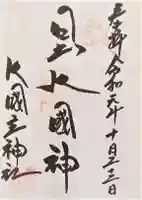 奉拝 令和元年十月二十三日
大國神
大國主神社